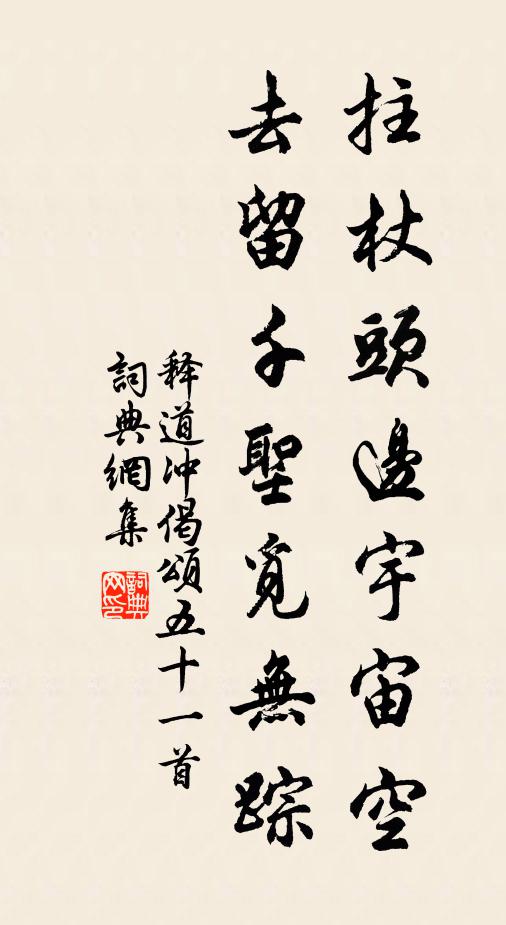 拄杖頭邊宇宙空
去留千聖覓無踪
释道冲偈頌五十一首
詞典網集
詞典網印